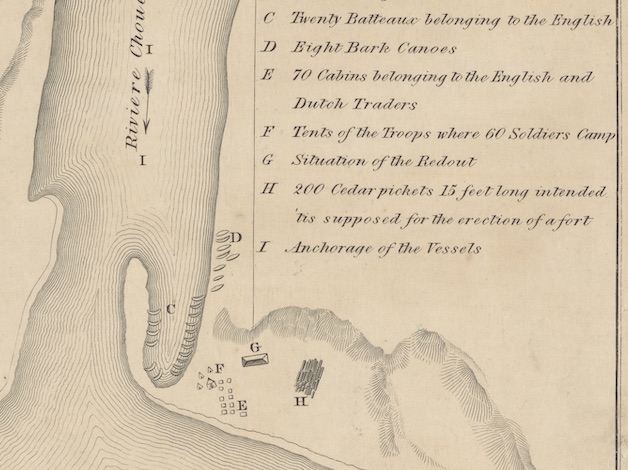 C Twenty Batteaux belonging to the English
D Eight Bark Canoes
E 70 Cabins belonging to the English and
Dutch Traders
F Tents of the Troops where 60 Soldiers Camp
G Situation of the Redout
H 200 Cedar pickets 15 feet long intended
'tis supposed for the erection of a fort
I Anchorage of the Vessels
Riviere Choue
I
I
D
C
G
F
E
H